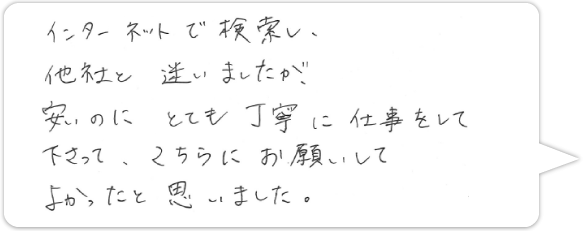 インターネットで検索し、
他社と 迷いましたが、
安いのに とても 丁寧に 仕事をして
下さって、こちらに お願いして
よかったと 思いました。